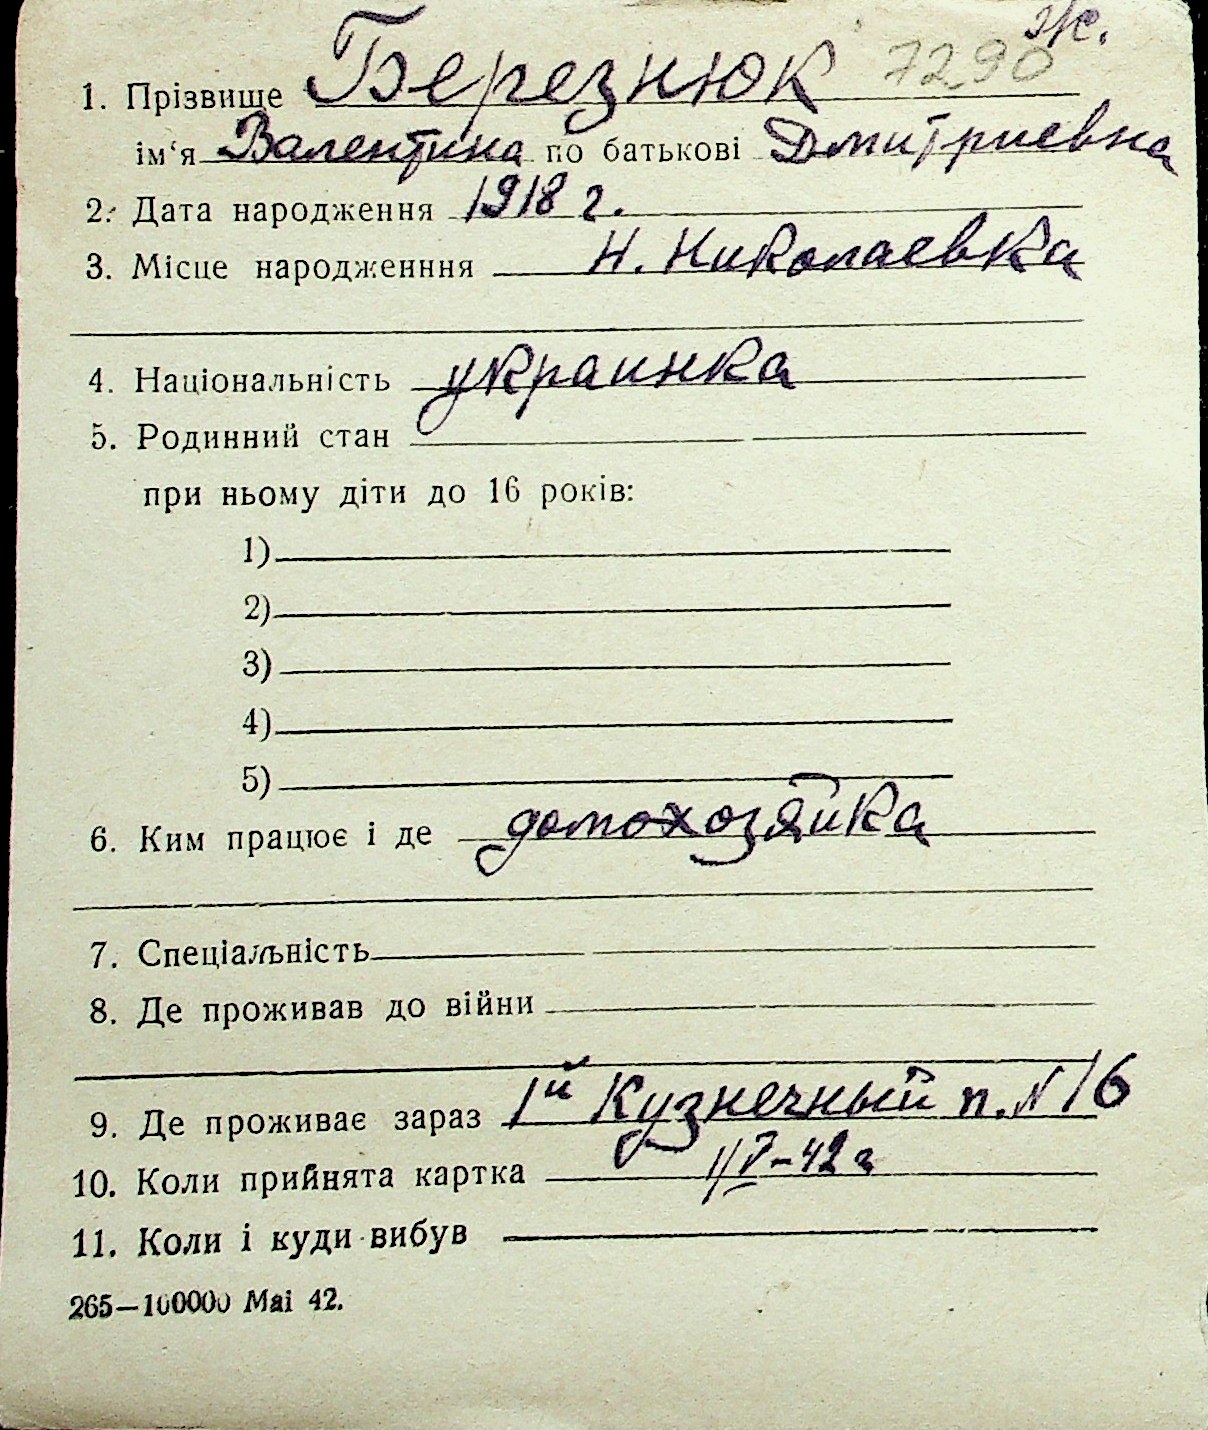 ж.
1. Прізвище Березнюк 7290
ім‘я Валентина по батькові Дмитриевна
2. Дата народження 1918 г.
3. Місце народженння Н. Николаевка
4. Національність украинка
5. Родинний стан
при ньому діти до 16 років:
1)
2)
3)
4)
5)
6. Ким працює і де домохозяйка
7. Спеціальність
8. Де проживав до війни
9. Де проживає зараз 1й Кузнечный п. № 16
10. Коли прийнята картка 1/V-42 г
11. Коли і куди вибув
265—100000 Mai 42.